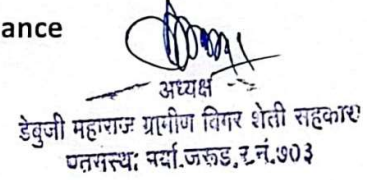 ance
अध्यक्ष
डेबुजी महाराज ग्रामीण बिगर शेती सहकारी
पतसंस्था मर्या.जरूड,र.नं.७०३